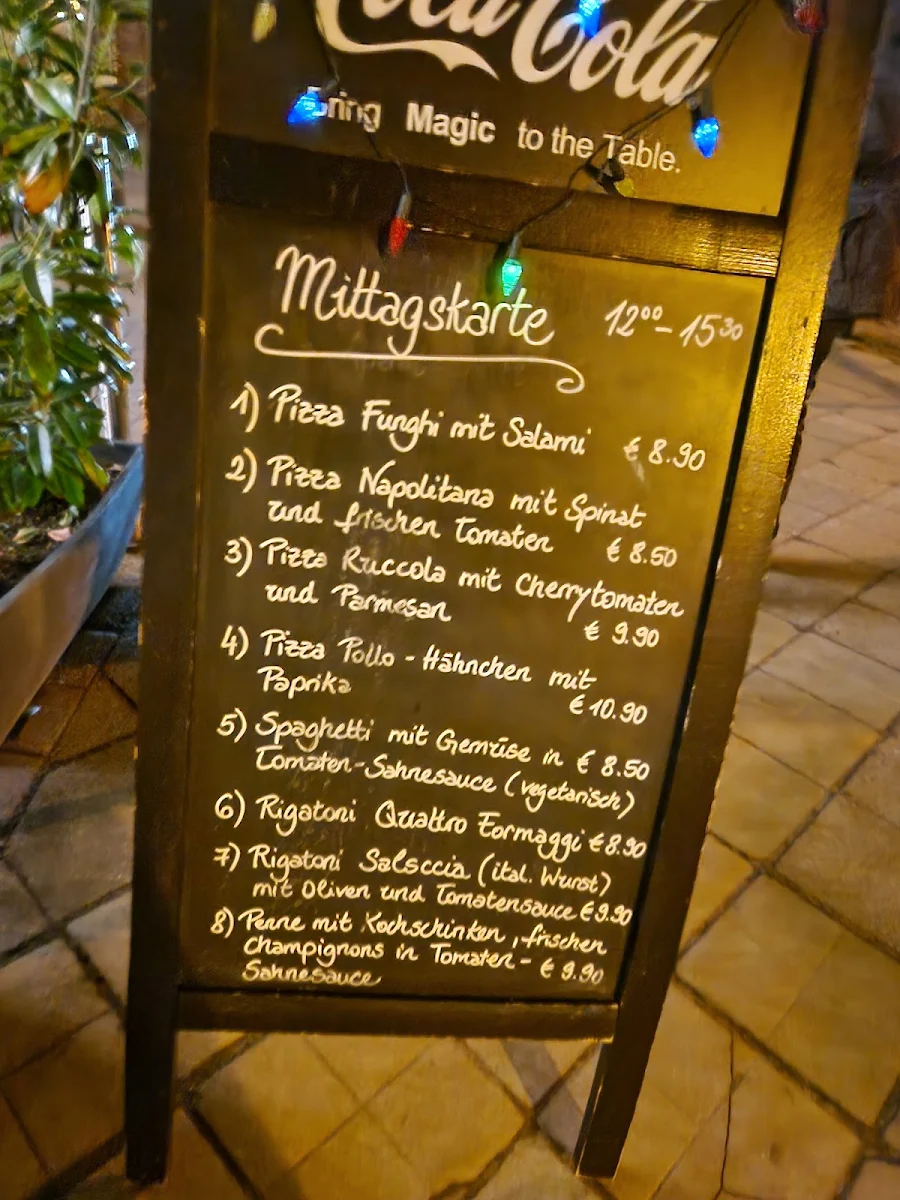 Coca Cola
Bring Magic to the Table.
Mittagskarte 12⁰⁰ - 15³⁰
1) Pizza Funghi mit Salami € 8.90
2) Pizza Napolitana mit Spinat
und frischen Tomaten € 8.50
3) Pizza Ruccola mit Cherrytomaten
und Parmesan € 9.90
4) Pizza Pollo - Hähnchen mit
Paprika € 10.90
5) Spaghetti mit Gemüse in € 8.50
Tomaten-Sahnesauce (vegetarisch)
6) Rigatoni Quattro Formaggi € 8.90
7) Rigatoni Salsccia (ital. Wurst)
mit Oliven und Tomatensauce € 9.90
8) Penne mit Kochschinken, frischen
Champignons in Tomaten- € 9.90
Sahnesauce